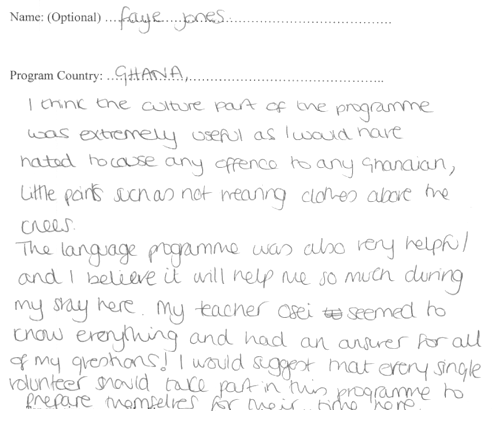 Name: (Optional) ...faye jones...
Program Country: ...GHANA,...
I think the culture part of the programme
was extremely useful as I would have
hated to cause any offence to any Ghanaian,
little points such as not wearing clothes above the
knees.
The language programme was also very helpful
and I believe it will help me so much during
my stay here. My teacher Osei to seemed to
know everything and had an answer for all
of my questions! I would suggest that every single
volunteer should take part in this programme to
prepare themselves for their time here.